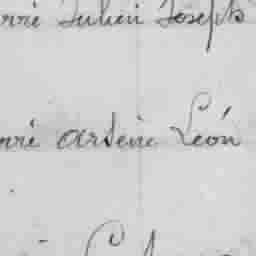 rré Julien Joseph
rré arsène Léon